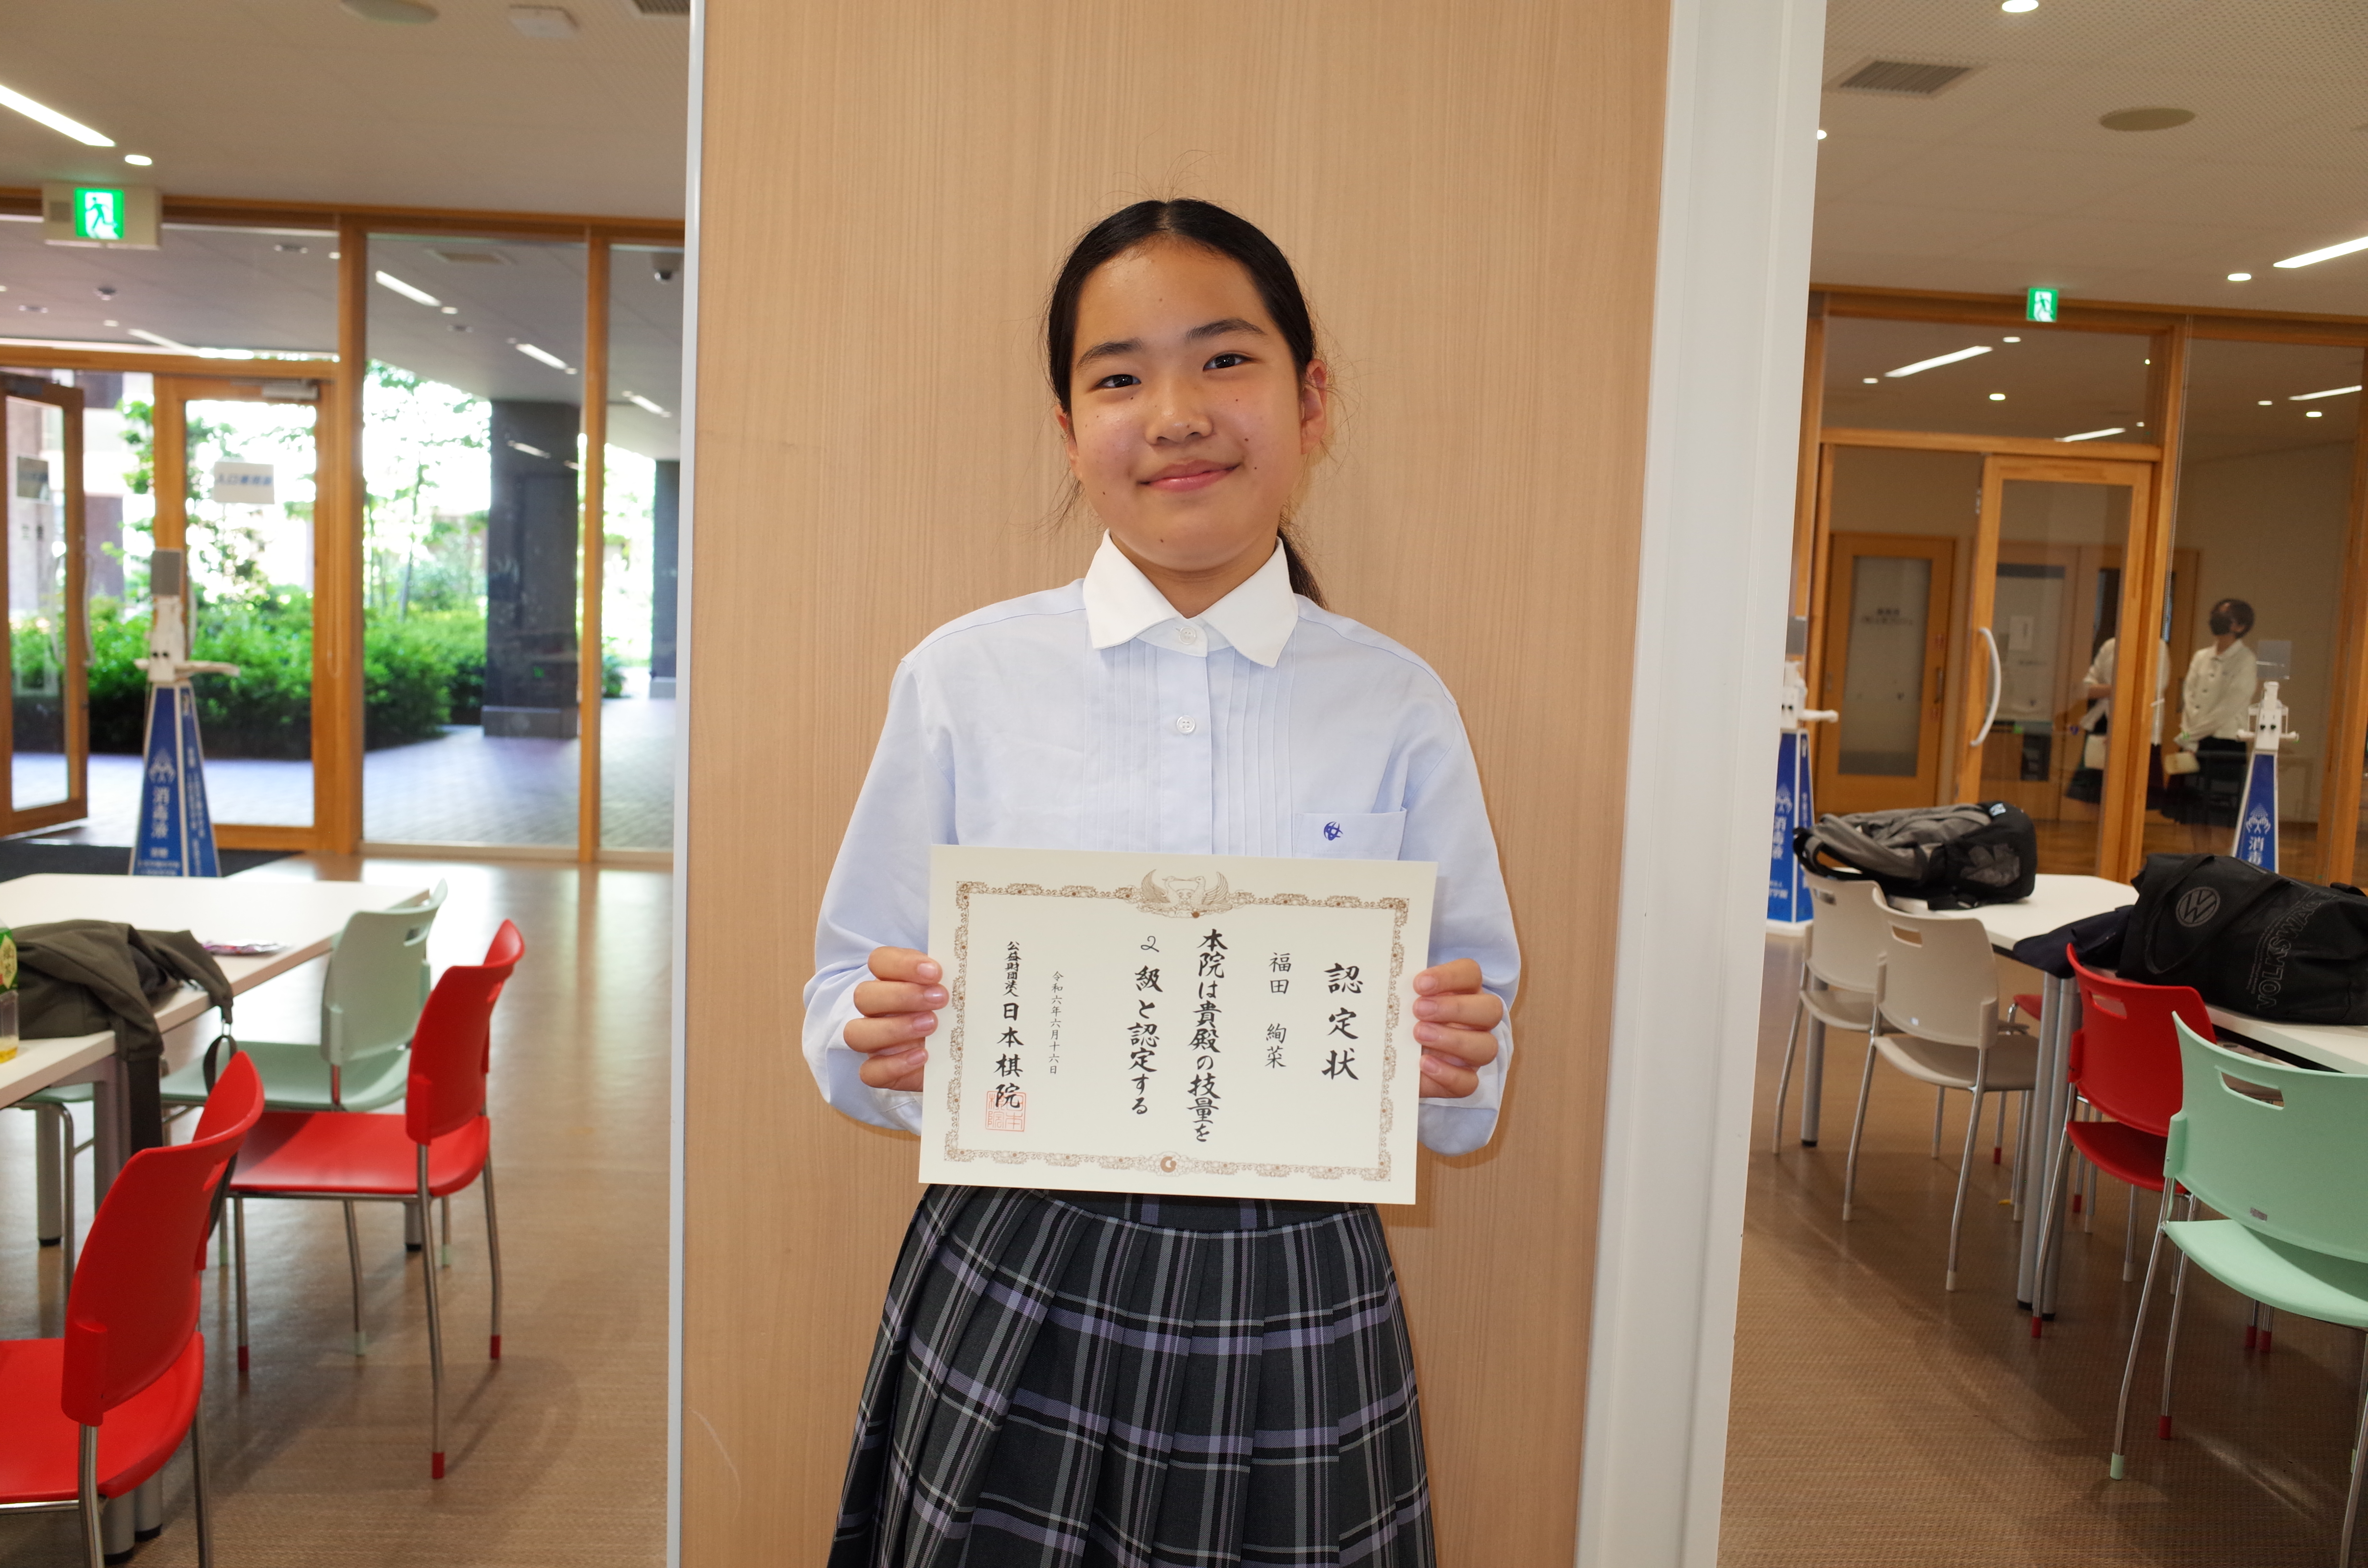 認定状
福田 絢菜
本院は貴殿の技量を
2級と認定する
令和六年六月十六日
公益財団法人 日本棋院
消毒液
消毒液
消毒
VOLKSWA